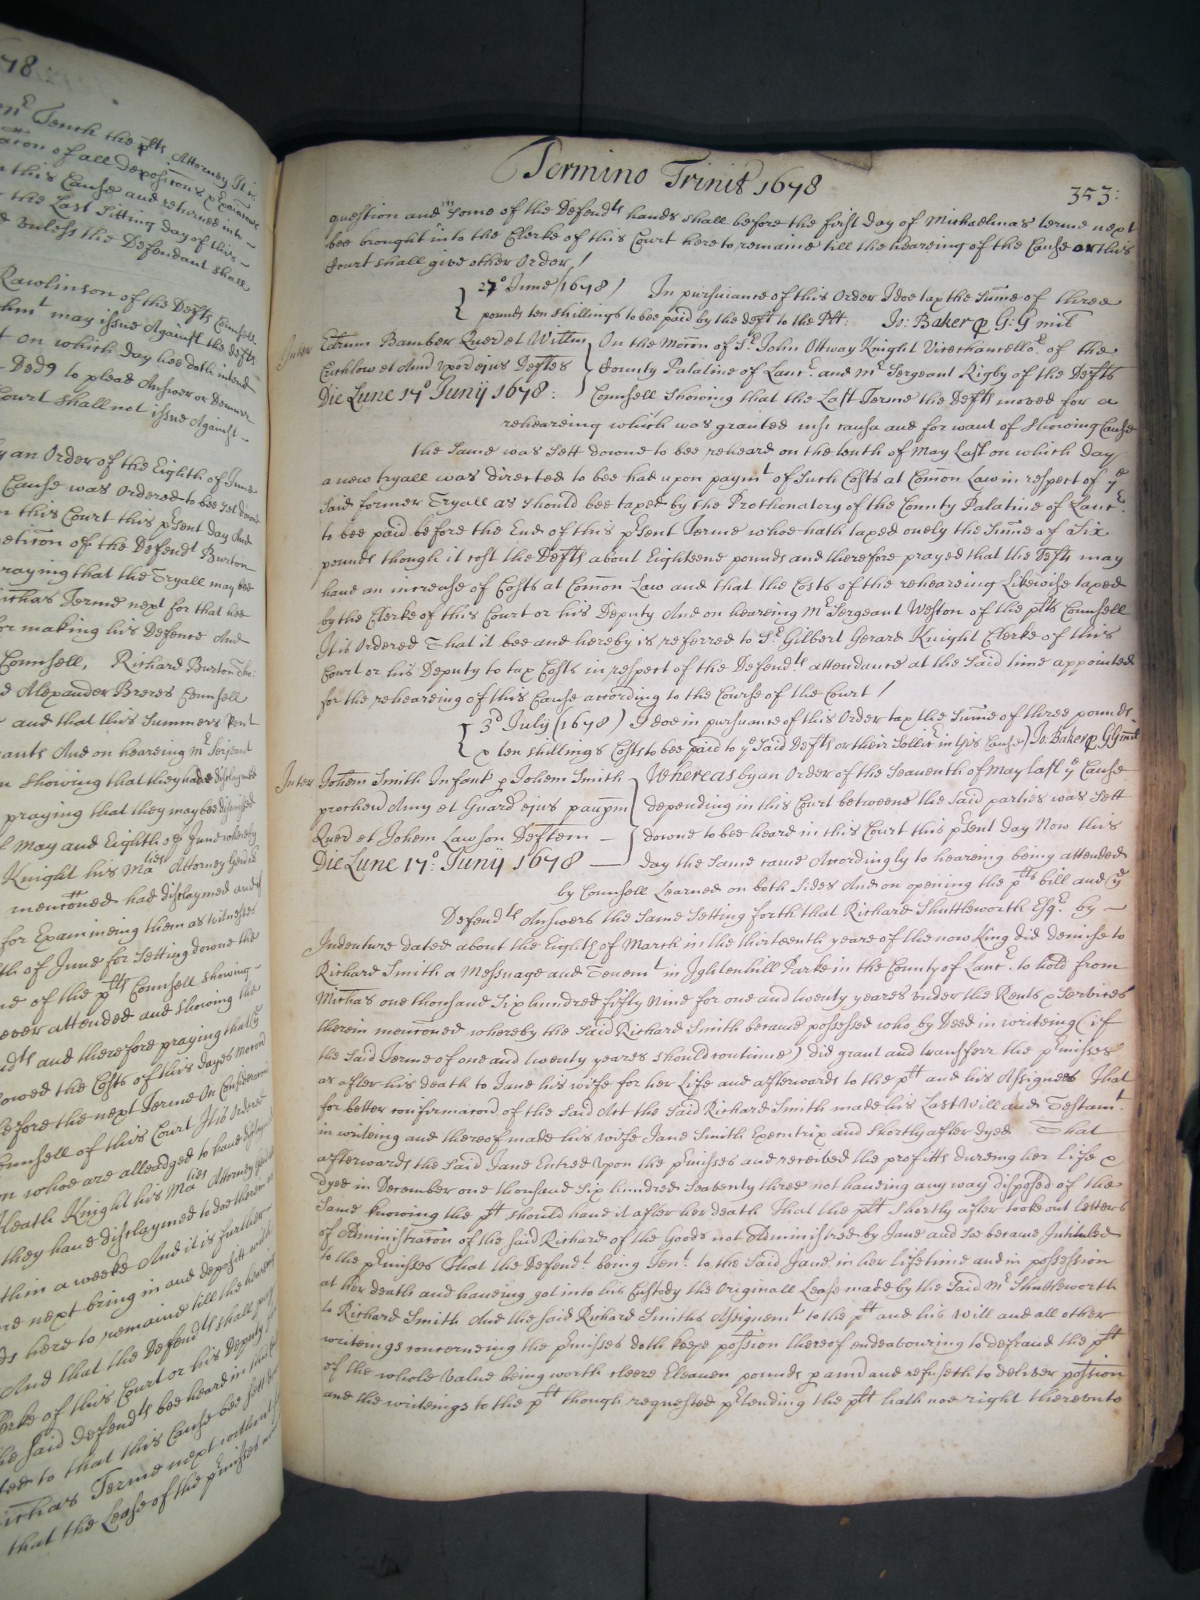 78
mr Tench the plts Attorney It is
acon of all deposicons & Examinacons
n this Cause and returned into
the Last Sitting day of this
d unless the Defendant shall
Rawlinson of the Defts Counsell
may issue Against the Defts
t on which day hee doth intend
Ded9 to plead Answer or Demurr
Court shall not issue Against
y an Order of the Eighth of June
Cause was Ordered to bee set downe
n this Court this pRsent day And
eticon of the Defendt Burton
raying that the Tryall may bee
ichas Terme next for that hee
or making his Defence And
Counsell, Richard Burton
d Alexander Breres Counsell
and that this Summers
ants And on heareing mr Serjeant
n showing that they had disclaymed
praying that they may bee dismissed
f may and Eighth of June whereby
Knight his Maties Attorney Genrll
mencioned had disclaymed and
for Examineing them as witnesses
th of June for Setting downe the
ne of the plts Counsell showing
ever attended and showing the
dts and therefore praying that
lowed the Costs of this dayes mocon
before the next Terme On Consideracon
Counsell of this Court It is Ordered
n whoe are alleadged to have disclaymed
Heath Knight his Maties Attorney
they have disclaymed to doe there
thin a weeke And it is further
re next bring in and deposite with
ds here to remaine till the heareing
And that the Defendts shall pay
Clerke of this Court or his Deputy
he said Defendts bee heard in
ded to that this Cause bee sett downe
Michas Terme next without
that the Lease of the pRmisses
Termino Trinit 1678
353:
question and in some of the Defendts hands shall before the first day of Michaelmas terme next
bee brought into the Clerke of this Court here to remaine till the heareing of the Cause or this
Court shall give other Order /
27o June (1678) In pursuance of this Order I doe tax the Sume of three
pounds ten shillings to bee paid by the deft to the Plt: Jo: Baker p G: G mil
Inter Edrum Bamber Quer et Willm
Cuthlow et And uxor ejus Deftes
Die Lune 17o Junij 1678:
On the Mocon of Sr John Ottway Knight Vicechancellor of the
County Palatine of Lancr and mr Sergeant Rigby of the Defts
Counsell Showing that the Last Terme the Defts moved for a
rehearing which was granted nisi causa and for want of Showing Cause
the Same was Sett downe to bee reheard on the tenth of May Last on which day
a new tryall was directed to bee had upon paymt of Such Costs at Comon Law in respect of ye
Said former Tryall as should bee taxed by the Prothonotary of the County Palatine of Lancr.
to bee paid before the End of this pRsent Terme whoe hath taxed onely the Sume of Six
pounds though it cost the Defts about Eighteene pounds and therefore prayed that the Defts may
have an increase of Costs at Comon Law and that the Costs of the rehearing Likewise taxed
by the Clerke of this Court or his Deputy And on hearing Mr Sergeant Weston of the plts Counsell
It is Ordered That it bee and hereby is referred to Sr Gilbert Gerard Knight Clerke of this
Court or his Deputy to tax Costs in respect of the Defendts attendance at the Said time appointed
for the rehearing of this Cause according to the Course of the Court /
3d July (1678) I doe in pursuance of this Order tax the Sume of three pounds
& ten shillings Costs to bee paid to ye Said Defts or their Sollicr in this Cause) Jo. Baker p G G mil
Inter Johem Smith Infant p Johem Smith
prochein Amy et Guard ejus paupm
Quer et Johem Lawson Deftem
Die Lune 17o: Junij 1678
Whereas by an Order of the Seaventh of May last ye Cause
depending in this Court betweene the Said parties was Sett
downe to bee heard in this Court this pRsent day Now this
day the Same came Accordingly to heareing being attended
by Counsell Learned on both Sides And on opening the plts bill and ye
Defendts Answers the Same Setting forth that Richard Shuttleworth Esqr. by
Indenture dated about the Eight of March in the thirteenth yeare of the now King did demise to
Richard Smith a Messuage and Tenemt in Ightenhill Parke in the County of Lancr. to hold from
Michas one thousand Six hundred fifty Nine for one and twenty yeares under the Rents & Services
therein mencioned whereby the Said Richard Smith became possessed who by Deed in writeing (if
the Said Terme of one and twenty yeares should continue) did grant and transferr the pRmisses
as after his death to Jane his wife for her Life and afterwards to the plt and his Assignes That
for better confirmacon of the Said Act the Said Richard Smith made his Last Will and Testamt.
in writeing and thereof made his wife Jane Smith Executrix and Shortly after dyed That
afterwards the Said Jane Entred Upon the pRmisses and received the profitts dureing her Life &
dyed in December one thousand Six hundred Seaventy three not haveing any way disposed of the
Same knowing the plt should have it after her death That the plt Shortly after tooke out Letters
of Administracon of the Said Richard of the Goods not Administred by Jane and Soe became Intituled
to the pRmisses That the Defendt. being Tent. to the Said Jane in her lifetime and in possession
at her death and haveing got into his Custody the Originall Lease made by the Said Mr Shuttleworth
to Richard Smith And the said Richard Smiths Assignemt to the plt and his Will and all other
writeings concerneing the pRmisses doth keepe possion thereof endeavouring to defraud the plt
of the whole value being worth cleere Eleaven pounds p annu and refuseth to deliver possion
and the writeings to the plt though requested pRtending the plt hath noe right thereunto